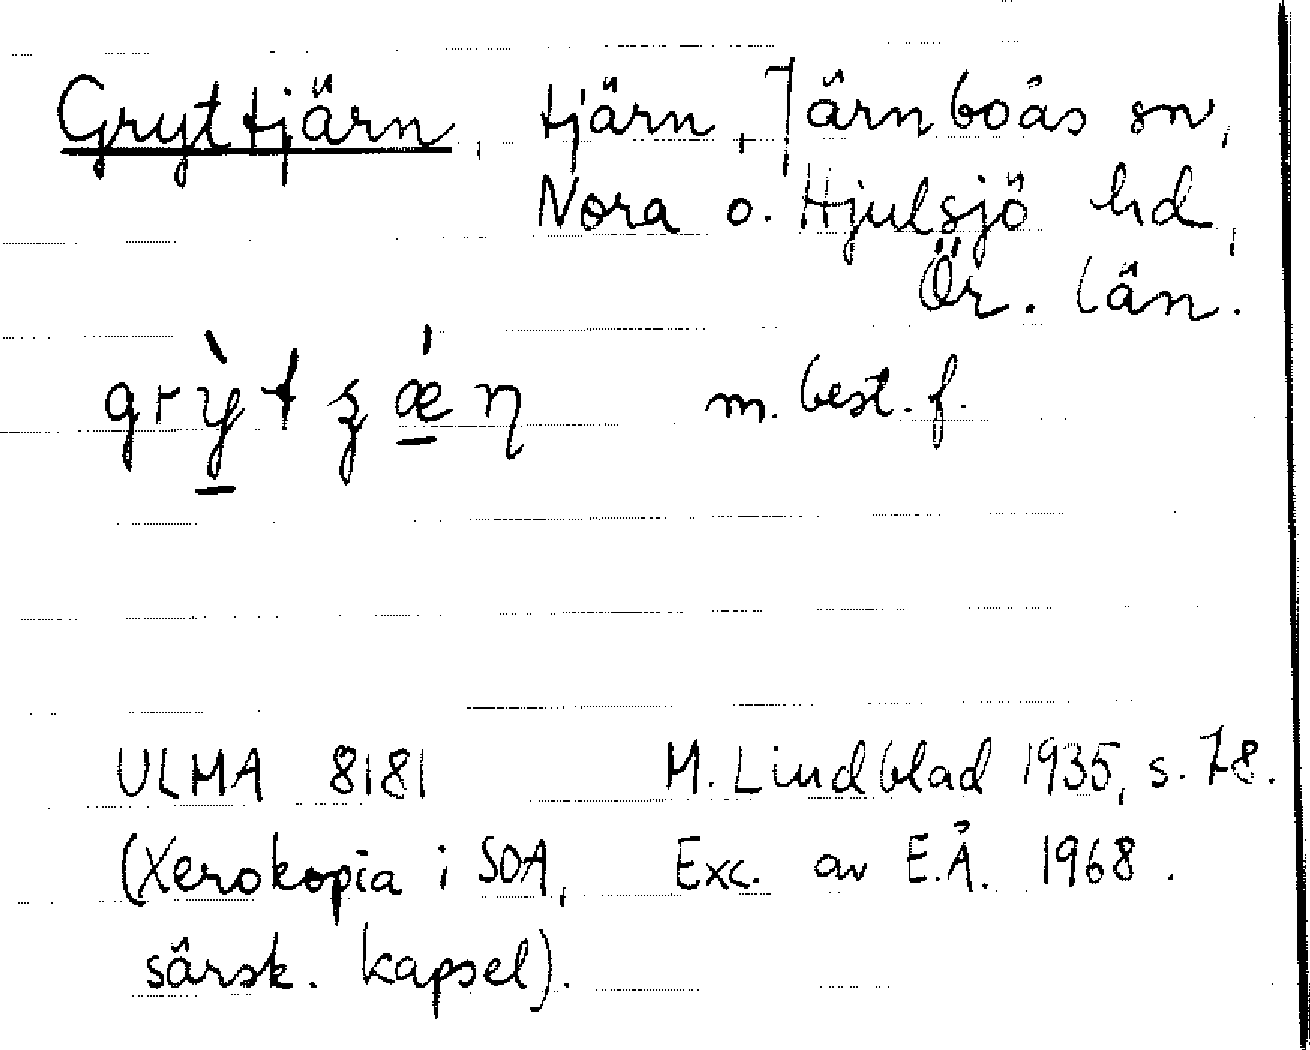 Gryttjärn, tjärn, Järnboås sn,
Nora o. Hjulsjö hd,
Ör. län.
grỳ̱tʒǽ̱η m. best. f.
ULMA 8181 M. Lindblad 1935, s. 78.
(Xerokopia i SOA, Exc. av E.Å. 1968.
särsk. kapsel).